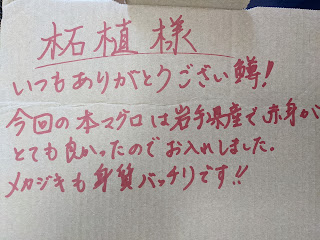 柘植様
いつもありがとうござい鱒!
今回の本マグロは岩手県産で赤身が
とても良かったのでお入れしました.
メカジキも身質バッチリです!!